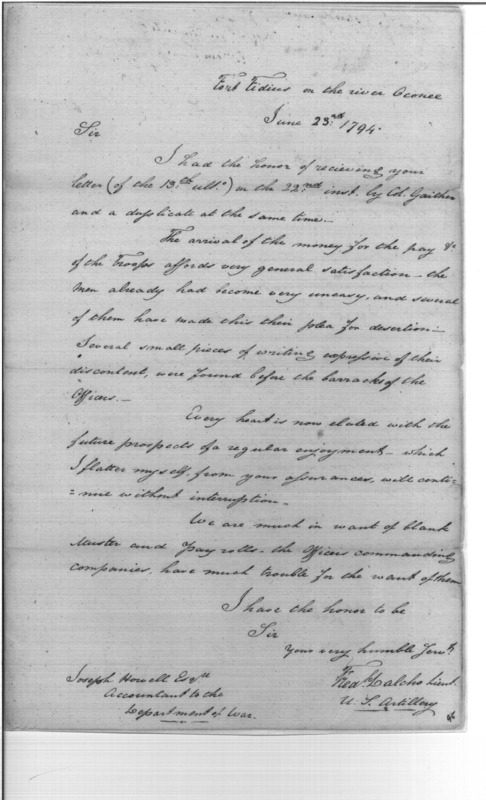 Fort Fidius on the river Oconee
June 23.rd 1794.
Sir
I had the honor of recieving your
letter (of the 13.th ult.o) on the 22.nd inst. by Col. Gaither
and a duplicate at the same time.—
The arrival of the money for the pay &c
of the Troops affords very general satisfaction — the
men already had become very uneasy, and several
of them have made this their plea for desertion —
Several small pieces of writing expressive of their
discontent, were found before the barracks of the
Officers. —
Every heart is now elated with the
future prospects of a regular enjoyment — which
I flatter myself, from your assurances, will conti-
=nue without interruption —
We are much in want of blank
Muster and pay rolls. the Officers commanding
companies, have much trouble for the want of them
I have the honor to be
Sir
your very humble Serv.t
Fred.k Dalcho Lieut.
U. S. Artillery
Joseph Howell Esqr.
Accountant to the
Department of War.